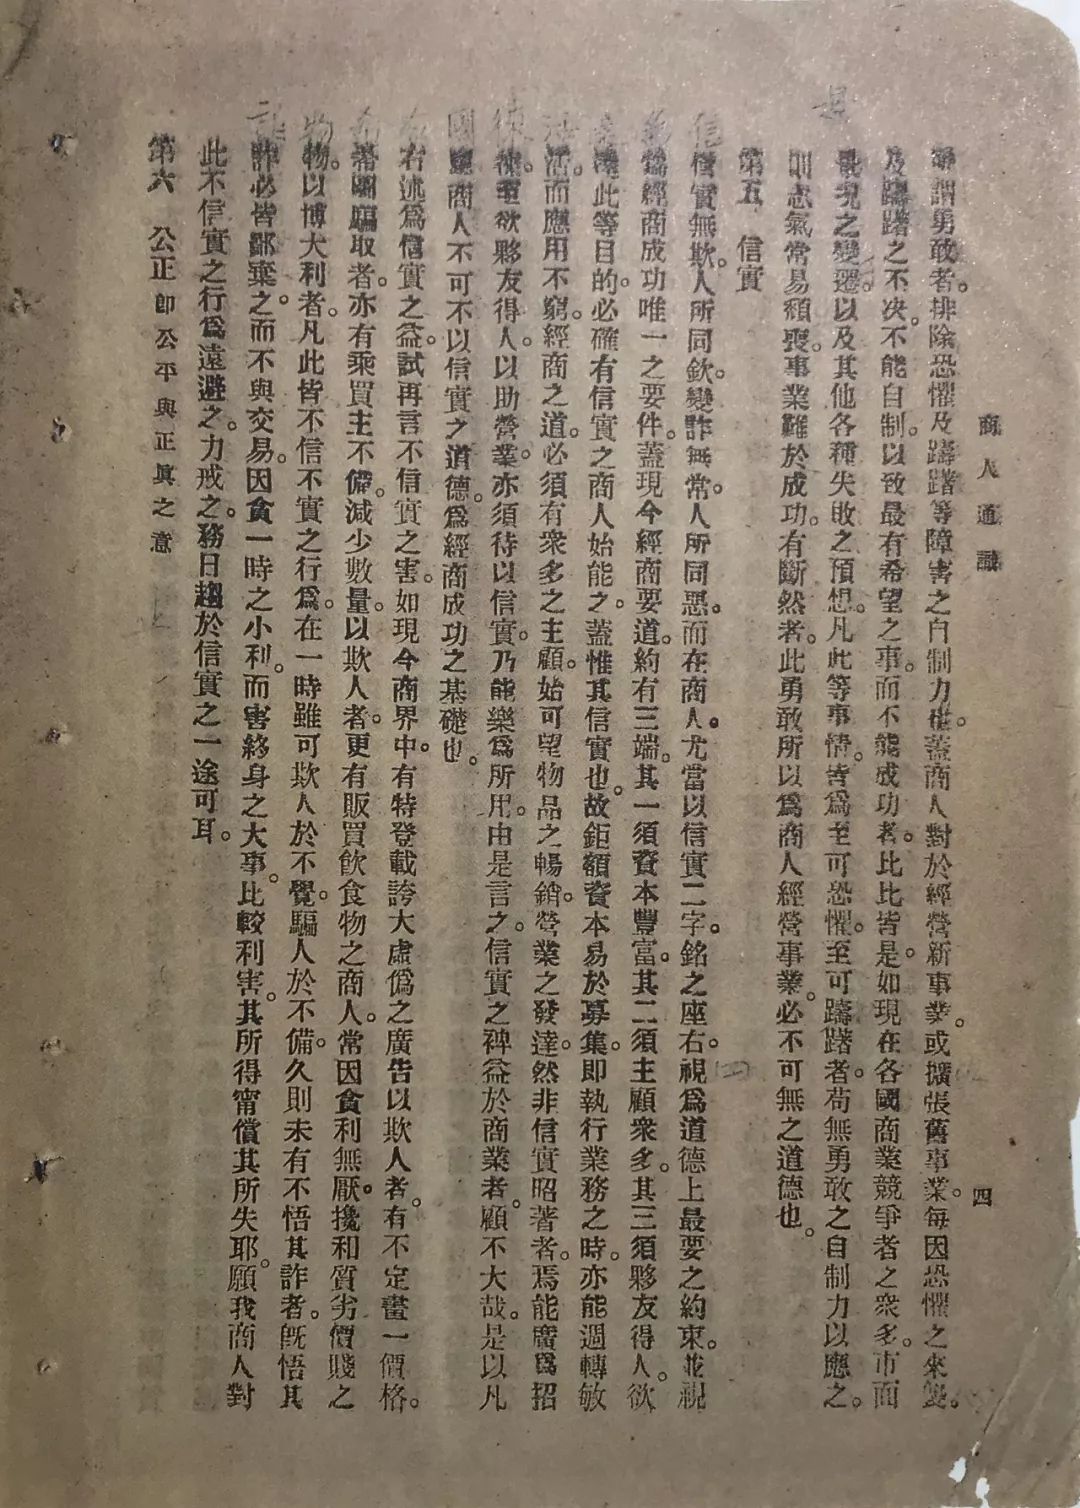 商人通識
四
謂勇敢者。排除恐懼及躊躇等障害之自制力也。蓋商人對於經營新事業。或擴張舊事業。每因恐懼之來襲。
及躊躇之不決。不能自制。以致最有希望之事。而不能成功者。比比皆是。如現在各國商業競爭者之衆多。市面
現之變遷。以及其他各種失敗之預想。凡此等事情。皆爲至可恐懼。至可躊躇者。苟無勇敢之自制力以應之。
則志氣常易頹喪。事業難於成功。有斷然者。此勇敢所以爲商人經營事業。必不可無之道德也。
第五 信實
信實無欺。人所同欽。變詐無常。人所同惡。而在商人。尤當以信實二字。銘之座右。視爲道德上最要之約束。並視
爲經商成功唯一之要件。蓋現今經商要道。約有三端。其一須資本豐富。其二須主顧衆多。其三須夥友得人。欲
達此等目的。必確有信實之商人始能之。蓋惟其信實也。故鉅額資本易於募集。即執行業務之時。亦能週轉敏
活。而應用不窮。經商之道。必須有衆多之主顧。始可望物品之暢銷。營業之發達。然非信實昭著者。焉能廣爲招
徠。至欲夥友得人。以助營業。亦須待以信實。乃能樂爲所用。由是言之。信實之裨益於商業者。顧不大哉。是以凡
國商人不可不以信實之道德。爲經商成功之基礎也。
右述爲信實之益。試再言不信實之害。如現今商界中。有特登載誇大虛僞之廣告以欺人者。有不定畫一價格。
希圖騙取者。亦有乘買主不備。減少數量。以欺人者。更有販買飲食物之商人。常因貪利無厭。攙和質劣價賤之
物。以博大利者。凡此皆不信不實之行爲。在一時雖可欺人於不覺。騙人於不備。久則未有不悟其詐者。旣悟其
詐。必皆鄙棄之。而不與交易。因貪一時之小利。而害終身之大事。比較利害。其所得甯償其所失耶。願我商人對
此不信實之行爲。遠避之。力戒之。務日趨於信實之一途可耳。
第六 公正即公平與正眞之意